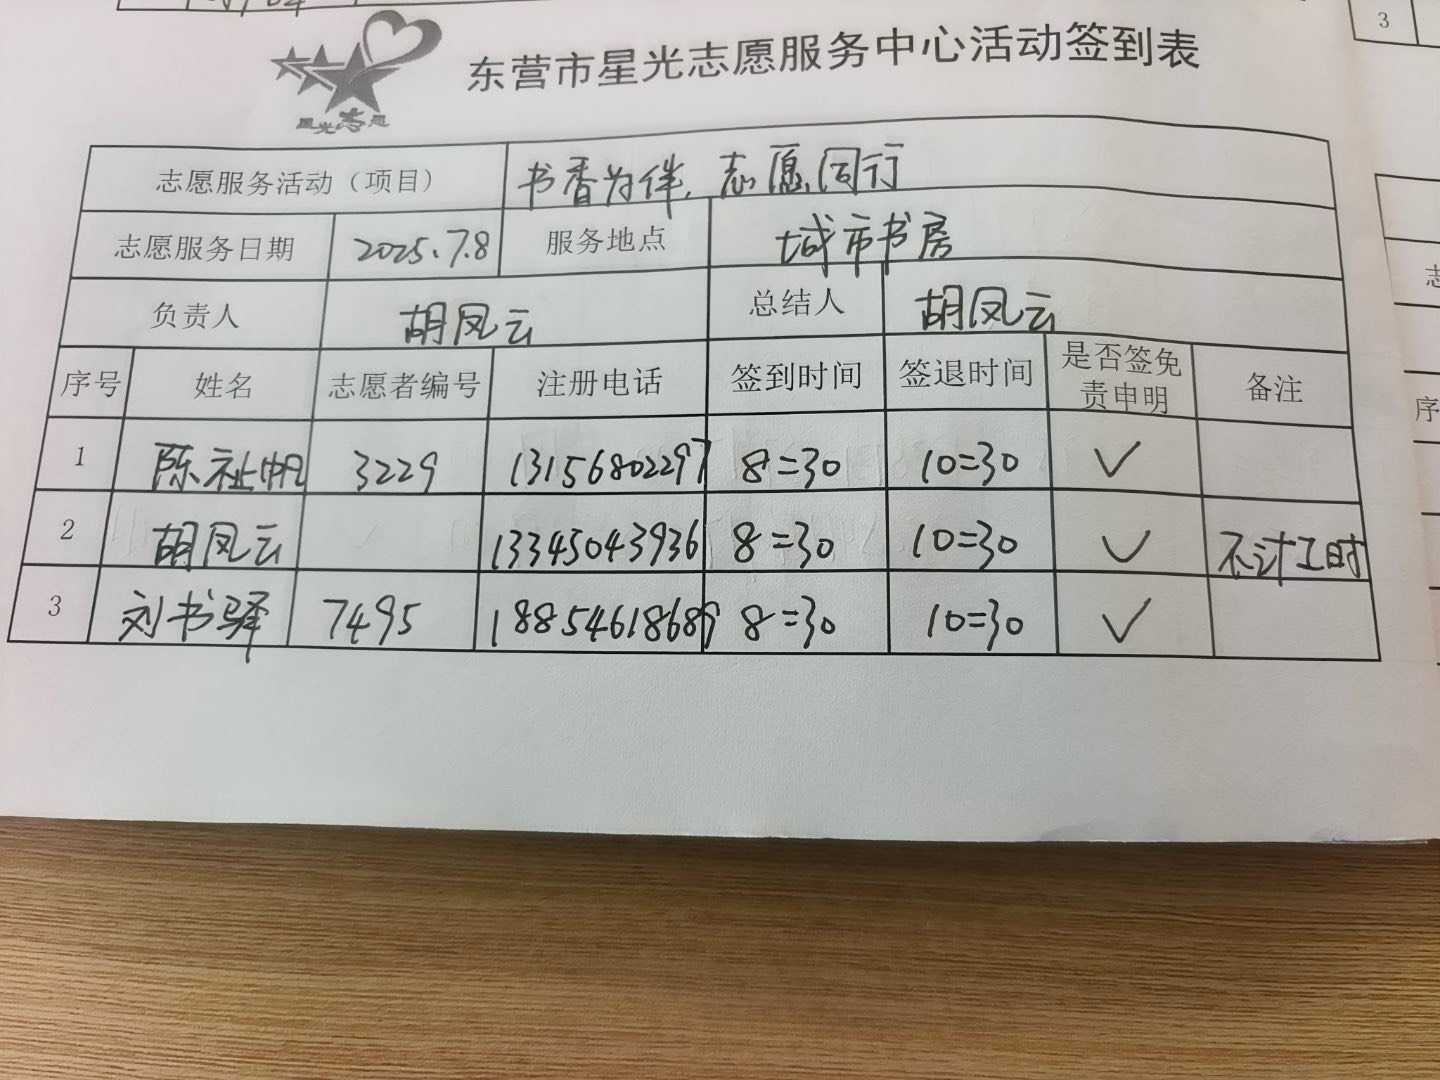 东营市星光志愿服务中心活动签到表
星光志愿
志愿服务活动（项目） 书香为伴，志愿同行
志愿服务日期 2025.7.8 服务地点 城市书房
负责人 胡凤云 总结人 胡凤云
序号 姓名 志愿者编号 注册电话 签到时间 签退时间 是否签免责申明 备注
1 陈祉帆 3229 13156802297 8=30 10=30 ✓
2 胡凤云 13345043936 8=30 10=30 ✓ 不计工时
3 刘书驿 7495 18854618689 8=30 10=30 ✓
3
志
序